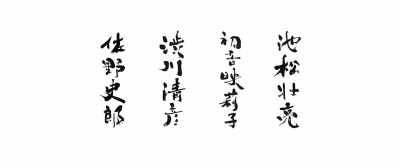 池松壮亮
初音映莉子
渋川清彦
佐野史郎